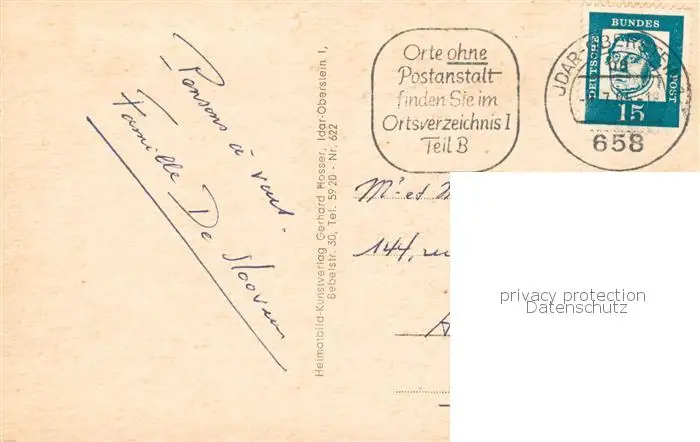 Pensons à vous.
Famille De
Heimatbild-Kunstverlag Gerhard Mosser, Idar-Oberstein 1,
Bebelstr. 30, Tel. 5920 - Nr. 622
Orte ohne
Postanstalt
finden Sie im
Ortsverzeichnis I
Teil B
IDAR-OBERSTEIN
658
DEUTSCHE
BUNDES
POST
15
Mr et
144, ru
privacy protection
Datenschutz